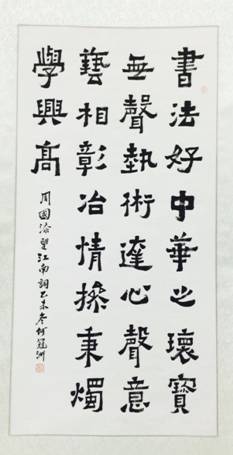 書法好中華之瓌寶
無聲熱術達心聲意
藝相彰冶情操秉燭
學興高
周國治望江南詞乙未冬何冠洲